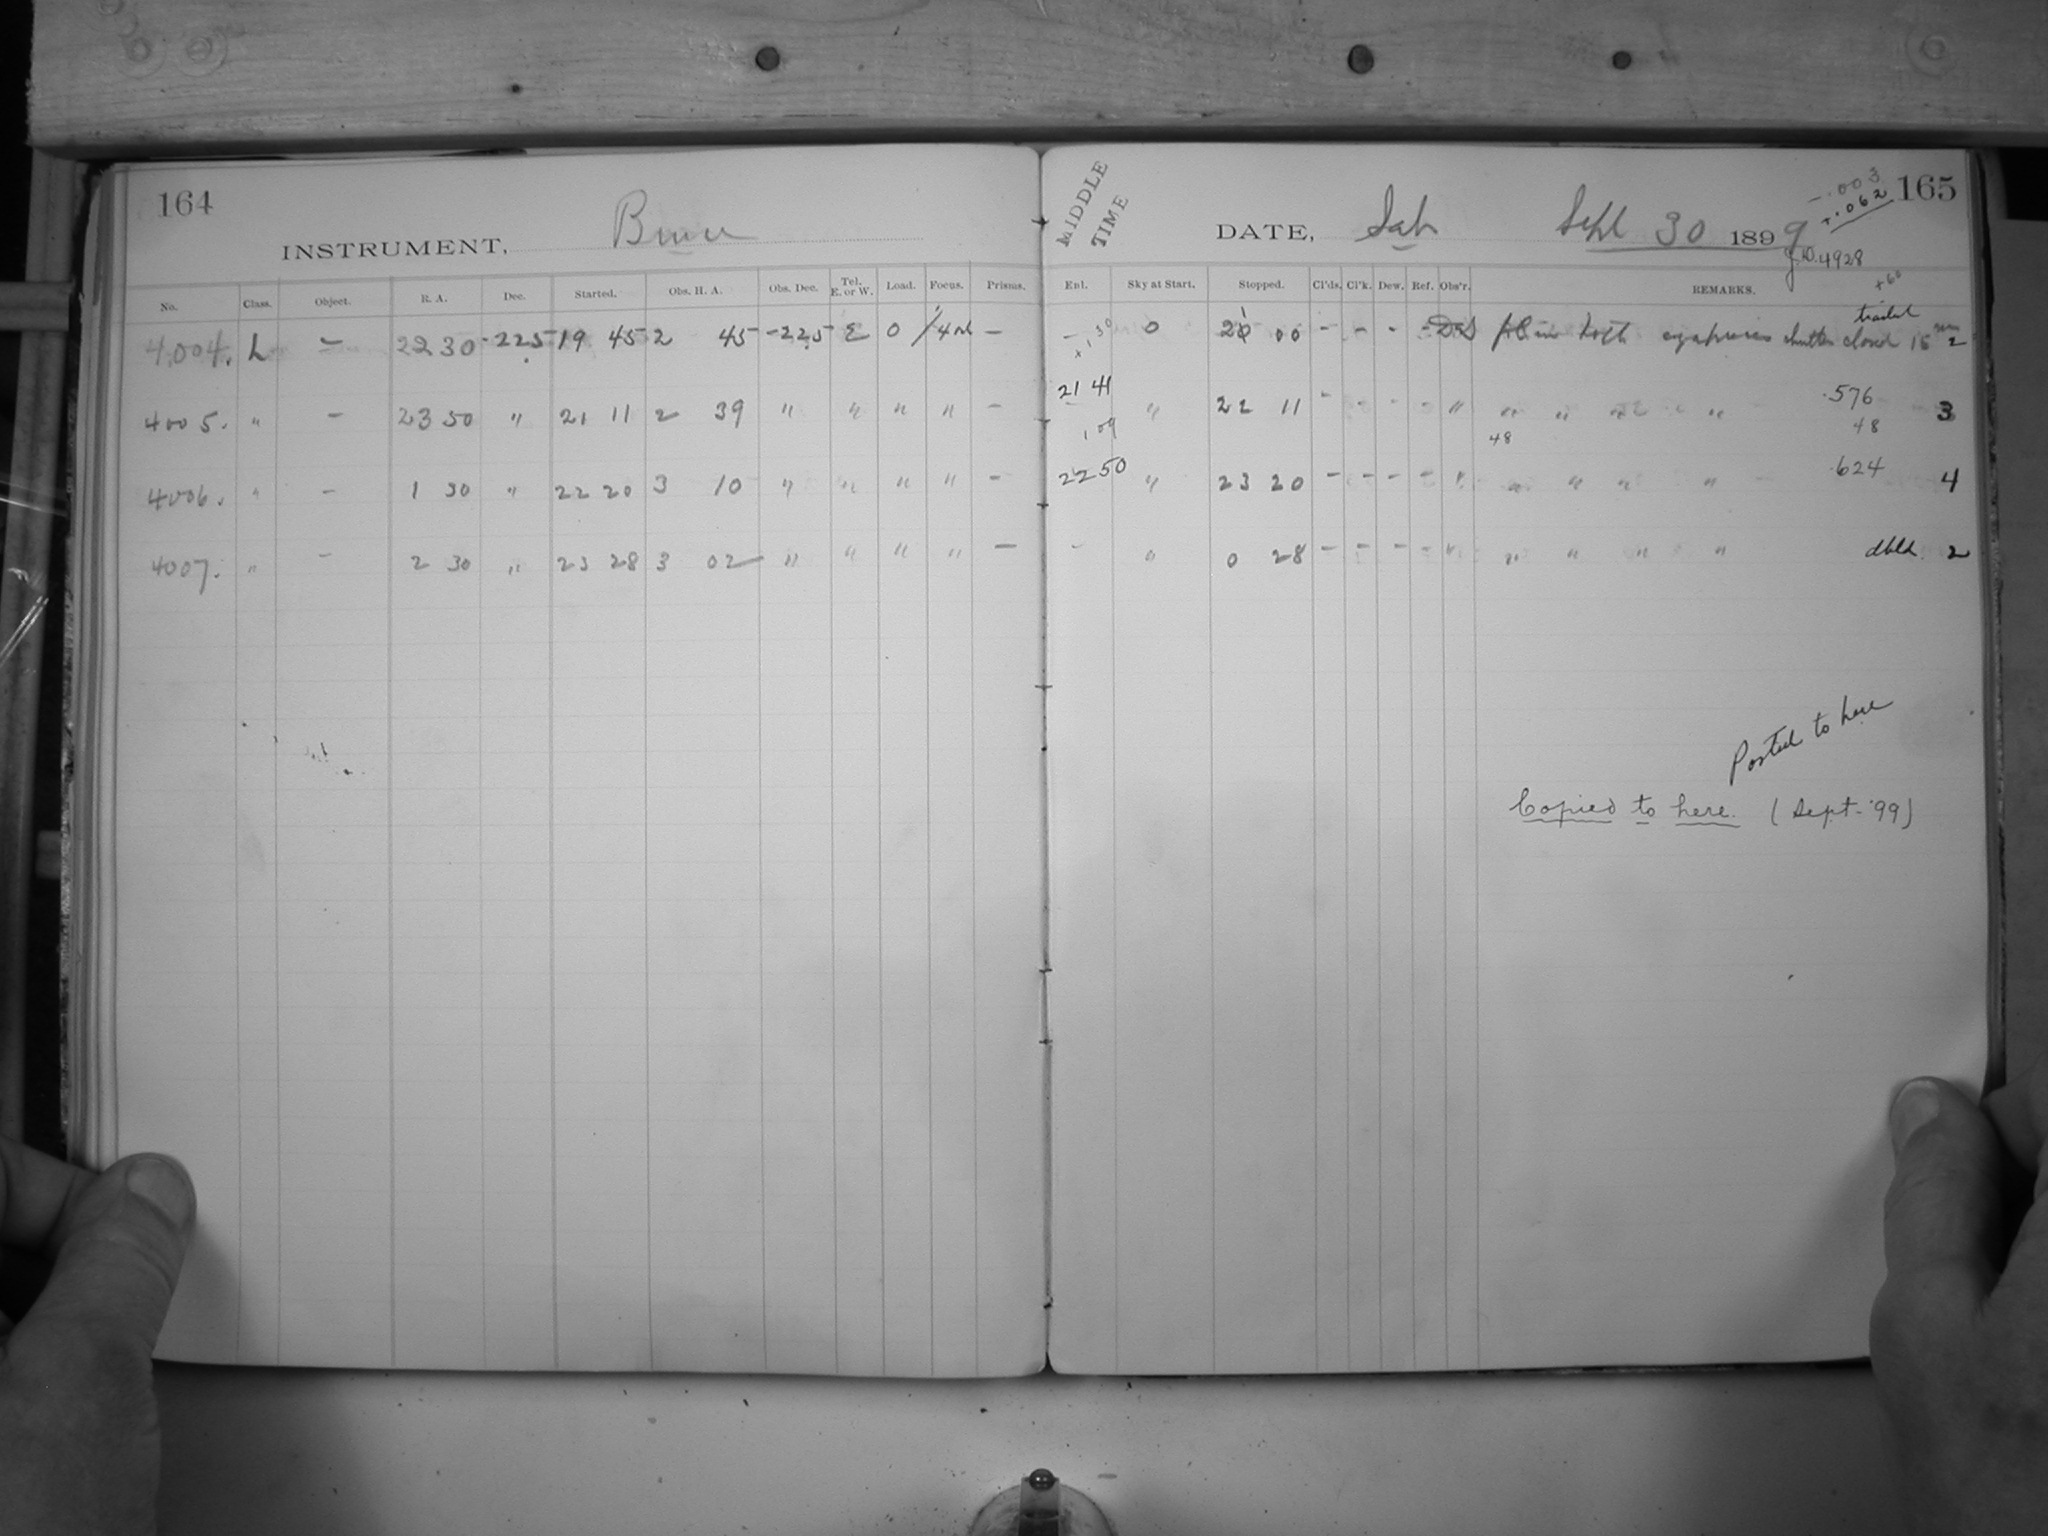 164
INSTRUMENT, Bruce
No. Class. Object. R. A. Dec. Started. Obs. H. A. Obs. Dec. Tel. E. or W. Load. Focus. Prisms.
4004. L — 22 30 -22.5 19 45 2 45 -22.5 E 0 —
4005. " — 23 50 " 21 11 2 39 " " " " —
4006. " — 1 30 " 22 20 3 10 " " " " —
4007. " — 2 30 " 23 28 3 02 " " " " —
MIDDLE TIME
DATE, Sat Sept 30 1899
-.003
+.062
165
J.D. 4928
+60
Enl. Sky at Start. Stopped. Cl'ds. Cl'k. Dew. Ref. Obs'r. REMARKS.
trailed
— 0 00 - - - - shutter closed 15 min 2
+1 30
21 41 " 22 11 - - - - " " " " " .576 3
1 09 48 48
22 50 " 23 20 - - - - " " " " " .624 4
- " 0 28 - - - - " " " " " dbld. 2
Posted to here
Copied to here. (Sept. '99)